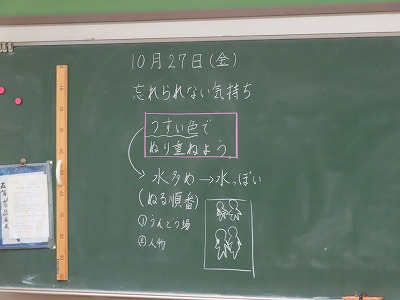 10月27日(金)
忘れられない気持ち
うすい色で
ぬり重ねよう。
水多め→水っぽい
(ぬる順番)
①うんどう場
②人物